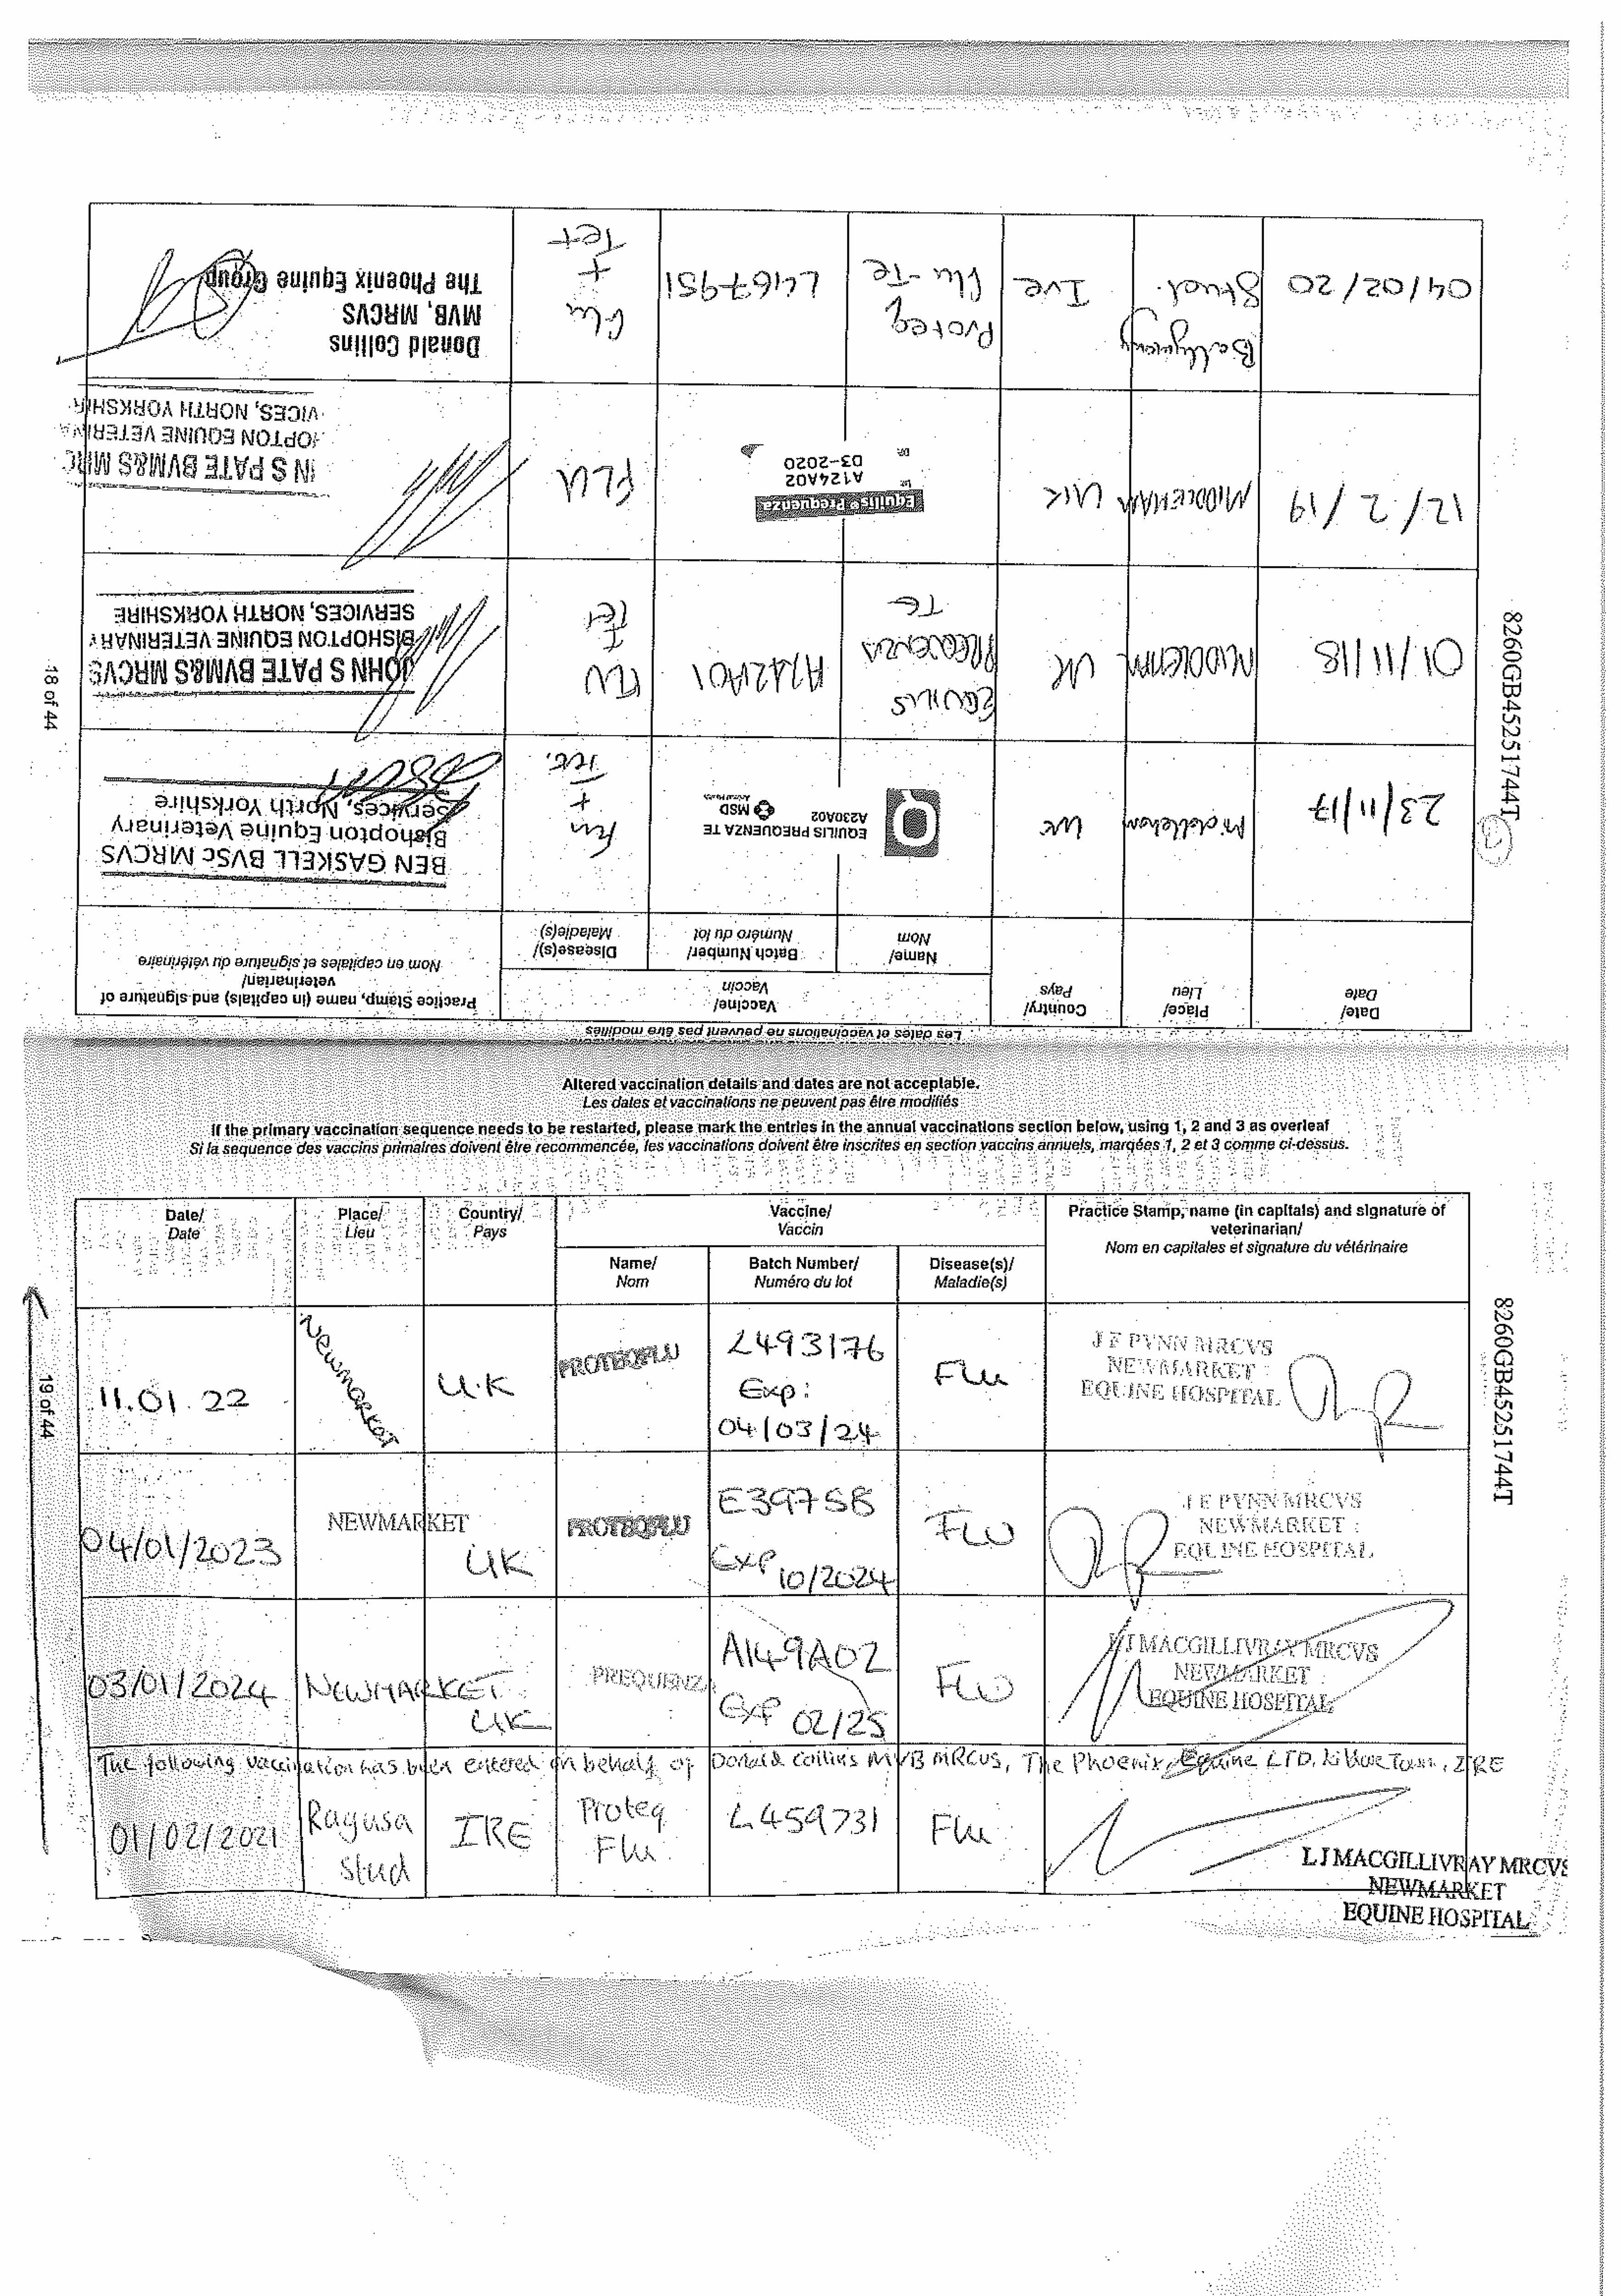 Les dates et vaccinations ne peuvent pas être modifiés
Date/ Date
Place/ Lieu
Country/ Pays
Vaccine/ Vaccin
Practice Stamp, name (in capitals) and signature of veterinarian/
Nom en capitales et signature du vétérinaire
Name/ Nom
Batch Number/ Numéro du lot
Disease(s)/ Maladie(s)
23/11/17
Middleham
UK
EQUILIS PREQUENZA TE
A230A02
MSD
Animal Health
Flu
+
Tet.
BEN GASKELL BVSc MRCVS
Bishopton Equine Veterinary
Services, North Yorkshire
01/11/18
MIDDLEHAM
UK
EQUILIS
PREQUENZA
TE
A242A01
FLU
+
Tet
JOHN S PATE BVM&S MRCVS
BISHOPTON EQUINE VETERINARY
SERVICES, NORTH YORKSHIRE
12/2/19
MIDDLEHAM
UK
Equilis Prequenza
A124A02
03-2020
FLU
N S PATE BVM&S MRC
OPTON EQUINE VETERINA
VICES, NORTH YORKSHIR
04/02/20
Stud.
Ire
Proteq
Flu-Te
L467951
Flu
+
Tet
Donald Collins
MVB, MRCVS
The Phoenix Equine Group
18 of 44
8260GB45251744T
Altered vaccination details and dates are not acceptable.
Les dates et vaccinations ne peuvent pas être modifiés
If the primary vaccination sequence needs to be restarted, please mark the entries in the annual vaccinations section below, using 1, 2 and 3 as overleaf
Si la sequence des vaccins primaires doivent être recommencée, les vaccinations doivent être inscrites en section vaccins annuels, marqées 1, 2 et 3 comme ci-dessus.
Date/ Date
Place/ Lieu
Country/ Pays
Vaccine/ Vaccin
Practice Stamp, name (in capitals) and signature of veterinarian/
Nom en capitales et signature du vétérinaire
Name/ Nom
Batch Number/ Numéro du lot
Disease(s)/ Maladie(s)
11.01.22
NEWMARKET
U.K
PROTEQFLU
L493176
Exp:
04/03/24
Flu
J E PYNN MRCVS
NEWMARKET
EQUINE HOSPITAL
04/01/2023
NEWMARKET
UK
PROTEQFLU
E3975B
Exp 10/2024
FLU
J E PYNN MRCVS
NEWMARKET
EQUINE HOSPITAL
03/01/2024
NEWMARKET
UK
PREQUENZA
A149A02
Exp 02/25
FLU
L J MACGILLIVRAY MRCVS
NEWMARKET
EQUINE HOSPITAL
The following vaccination has been entered on behalf of Donald Collins MVB MRCVS, The Phoenix Equine LTD, IRE
01/02/2021
Ragusa
Stud
IRE
Proteq
Flu
L459731
Flu
L J MACGILLIVRAY MRCVS
NEWMARKET
EQUINE HOSPITAL
19 of 44
8260GB45251744T